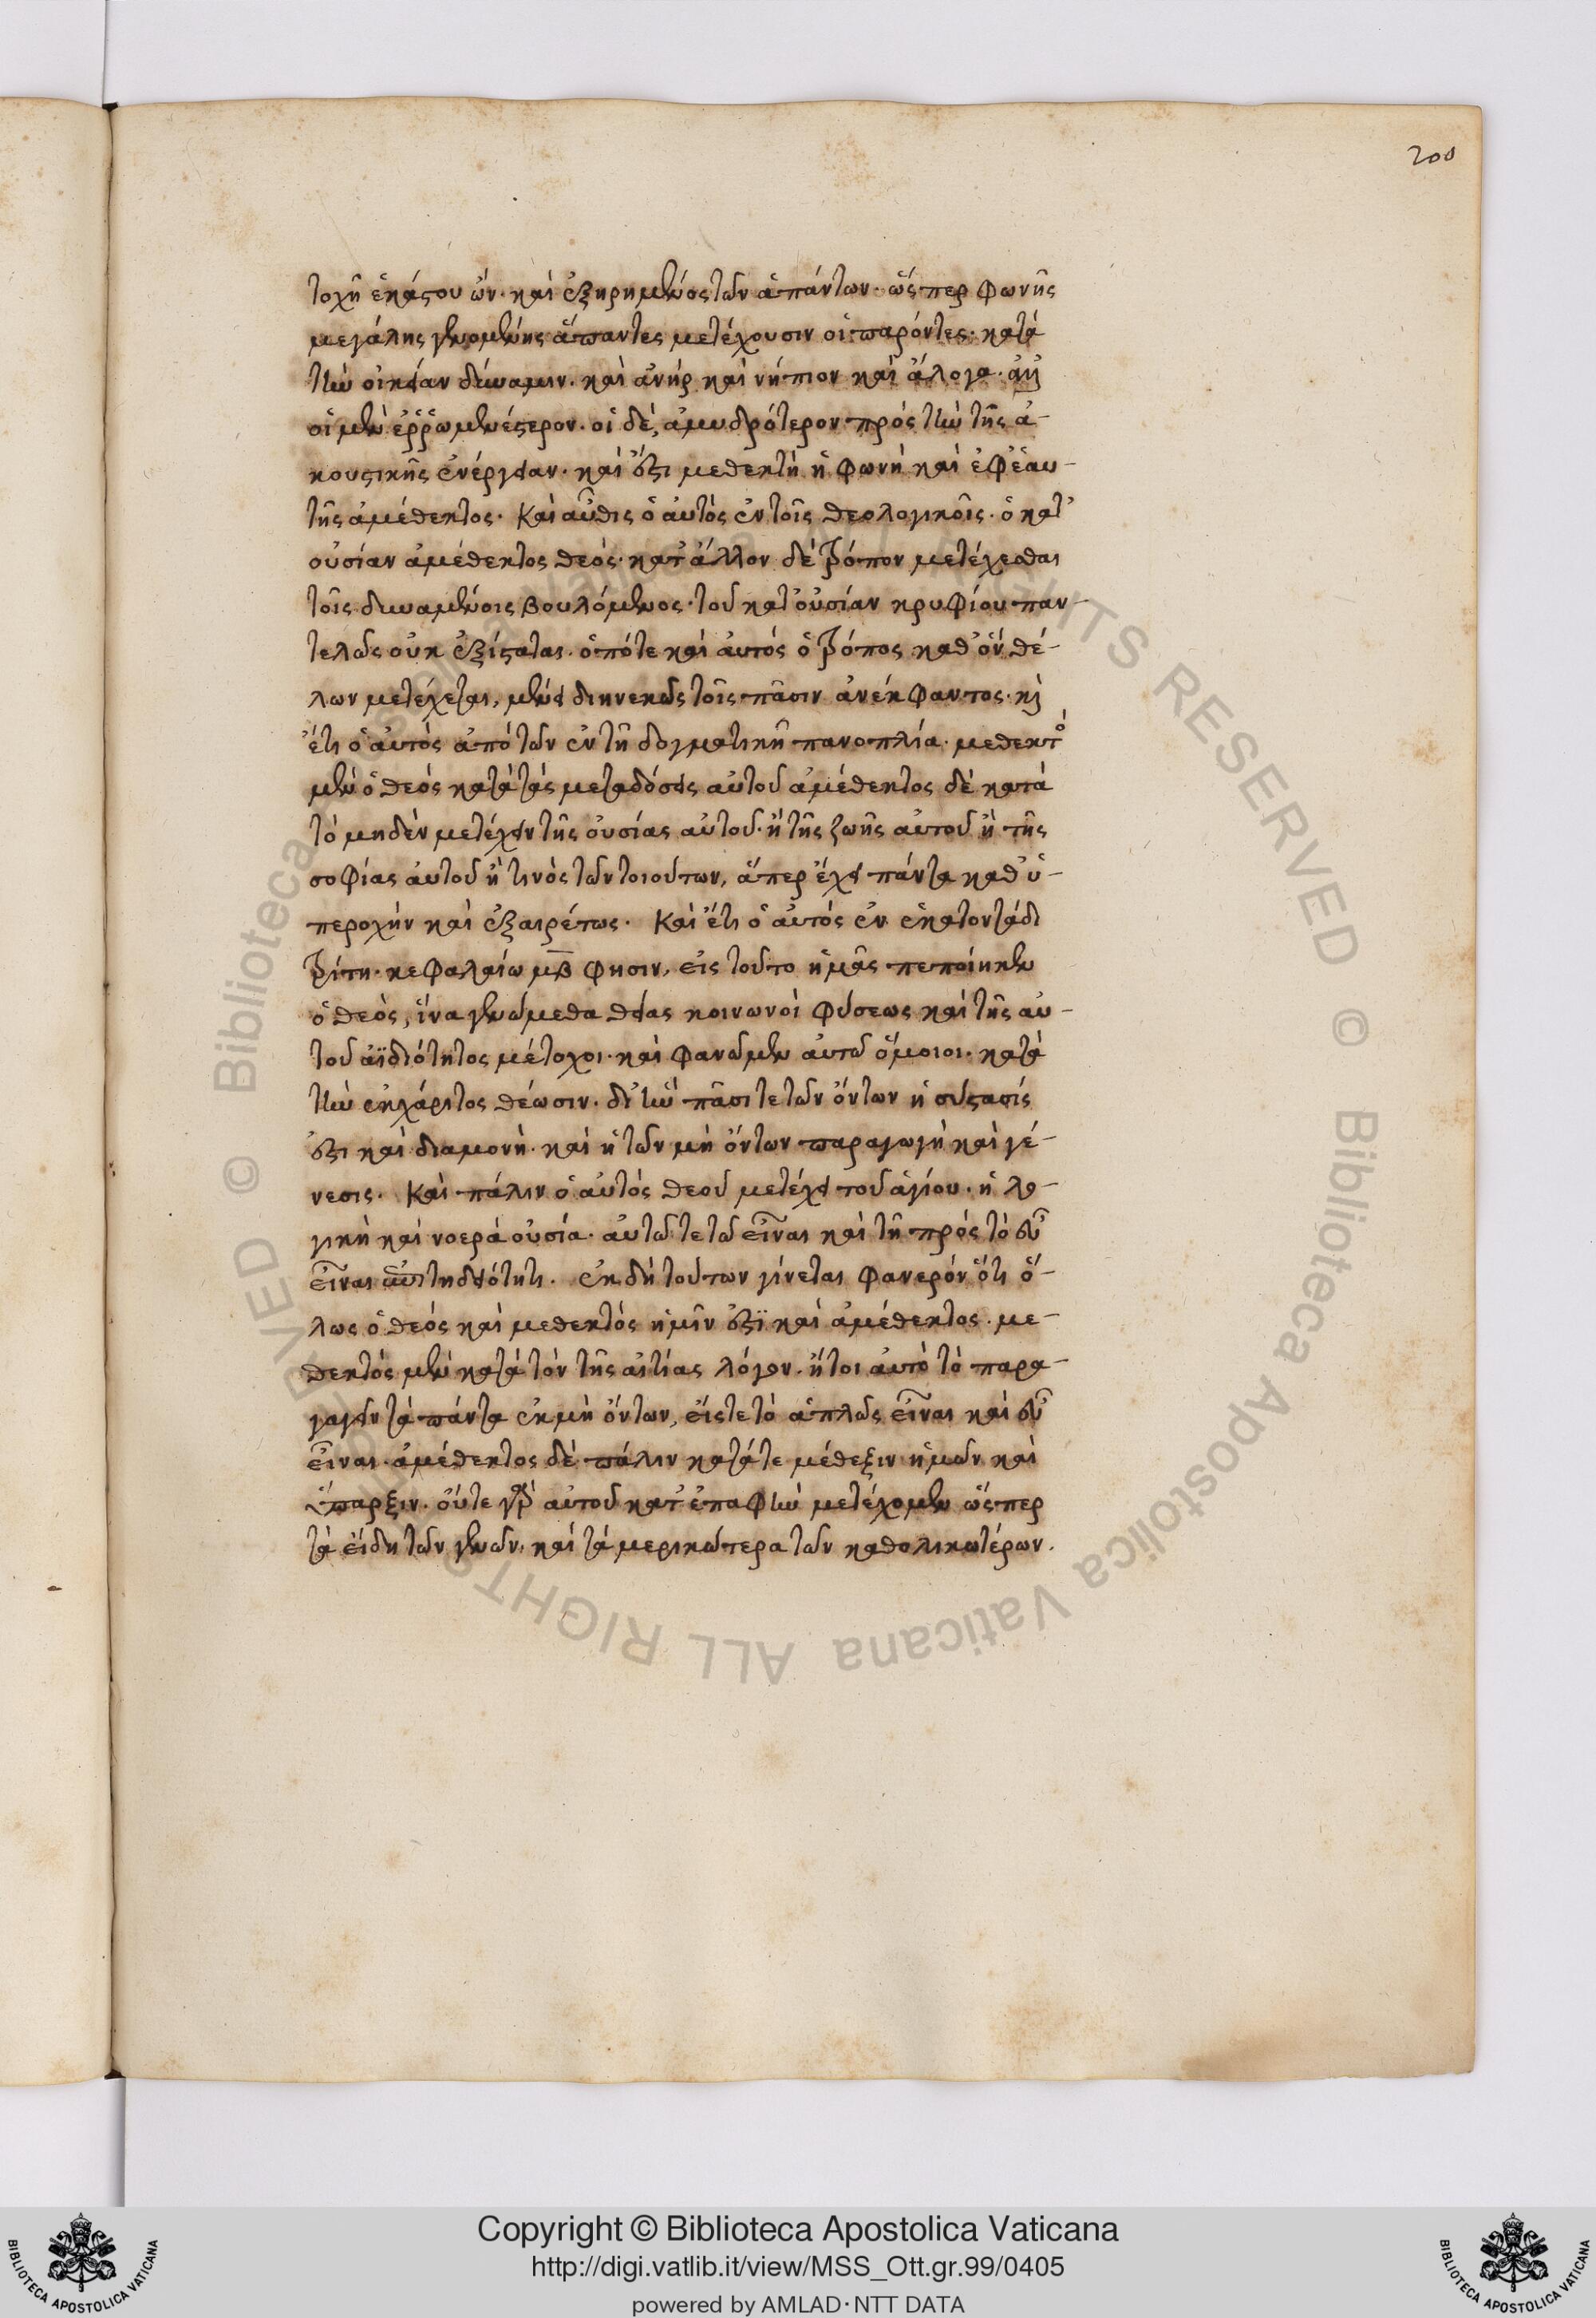 200
τοχῆ ἑκάστου ὤν· καὶ ἐξηρημένος τῶν ἁπάντων· ὥσπερ φωνῆς
μεγάλης γενομένης ἅπαντες μετέχουσιν οἱ παρόντες· κατὰ
τὴν οἰκείαν δύναμιν· καὶ ἀνὴρ καὶ νήπιον καὶ ἄλογα·
οἱ μὲν ἐῤῥωμενέστερον· οἱ δὲ, ἀμυδρότερον πρὸς τὴν τῆς ἀ-
κουστικῆς ἐνέργειαν· καὶ ἔστι μεθεκτὴ ἡ φωνὴ καὶ ἐφ' ἑαυ-
τῆς ἀμέθεκτος. Καὶ αὖθις ὁ αὐτὸς ἐν τοῖς θεολογικοῖς· ὁ κατ'
οὐσίαν ἀμέθεκτος θεός· κατ' ἄλλον δὲ τρόπον μετέχεσθαι
τοῖς δυναμένοις βουλόμενος· τοῦ κατ' οὐσίαν κρυφίου παν-
τελῶς οὐκ ἐξίσταται· ὁπότε καὶ αὐτὸς ὁ τρόπος καθ' ὃν θέ-
λων μετέχεται, μένει διηνεκῶς τοῖς πᾶσιν ἀνέκφαντος· καὶ
ἔτι ὁ αὐτὸς ἀπὸ τῶν ἐν τῆ δογματικῆ πανοπλία· μεθεκτὸ
μὲν ὁ θεὸς κατὰ τὰς μεταδόσεις αὐτοῦ ἀμέθεκτος δὲ κατὰ
τὸ μηδὲν μετέχειν τῆς οὐσίας αὐτοῦ· ἢ τῆς ζωῆς αὐτοῦ ἢ τῆς
σοφίας αὐτοῦ ἢ τινὸς τῶν τοιούτων, ἅπερ ἔχει πάντα καθ' ὑ-
περοχὴν καὶ ἐξαιρέτως. Καὶ ἔτι ὁ αὐτὸς ἐν ἑκατοντάδι
τρίτη· κεφαλαίω μβ φησιν, εἰς τοῦτο ἡμᾶς πεποίηκεν
ὁ θεὸς, ἵνα γενώμεθα θείας κοινωνοὶ φύσεως καὶ τῆς αὐ-
τοῦ ἀϊδιότητος μέτοχοι· καὶ φανῶμεν αὐτῶ ὅμοιοι· κατὰ
τὴν ἐκ χάριτος θέωσιν· δι' ἣν πᾶσι τε τῶν ὄντων ἡ σύστασίς
ἐστι καὶ διαμονὴ· καὶ ἡ τῶν μὴ ὄντων παραγωγὴ καὶ γέ-
νεσις. Καὶ πάλιν ὁ αὐτὸς θεοῦ μετέχει τοῦ ἁγίου· ἡ λο-
γικὴ καὶ νοερὰ οὐσία· αὐτῶ τε τῶ εἶναι καὶ τῆ πρὸς τὸ εὖ
εἶναι ἐπιτηδειότητι. ἐκ δὴ τούτων γίνεται φανερὸν ὅτι ὅ-
λως ὁ θεὸς καὶ μεθεκτὸς ἡμῖν ἐστὶ καὶ ἀμέθεκτος· με-
θεκτὸς μὲν κατὰ τὸν τῆς αἰτίας λόγον· ἤτοι αὐτὸ τὸ παρα-
γαγεῖν τὰ πάντα ἐκ μὴ ὄντων, εἴς τε τὸ ἁπλῶς εἶναι καὶ εὖ
εἶναι· ἀμέθεκτος δὲ πάλιν κατά τε μέθεξιν ἡμῶν καὶ
ὕπαρξιν· οὔτε γὰρ αὐτοῦ κατ' ἐπαφὴν μετέχομεν ὥσπερ
τὰ εἴδη τῶν γενῶν, καὶ τὰ μερικώτερα τῶν καθολικωτέρων.
Copyright © Biblioteca Apostolica Vaticana
http://digi.vatlib.it/view/MSS_Ott.gr.99/0405
powered by AMLAD·NTT DATA
BIBLIOTECA APOSTOLICA VATICANA
BIBLIOTECA APOSTOLICA VATICANA